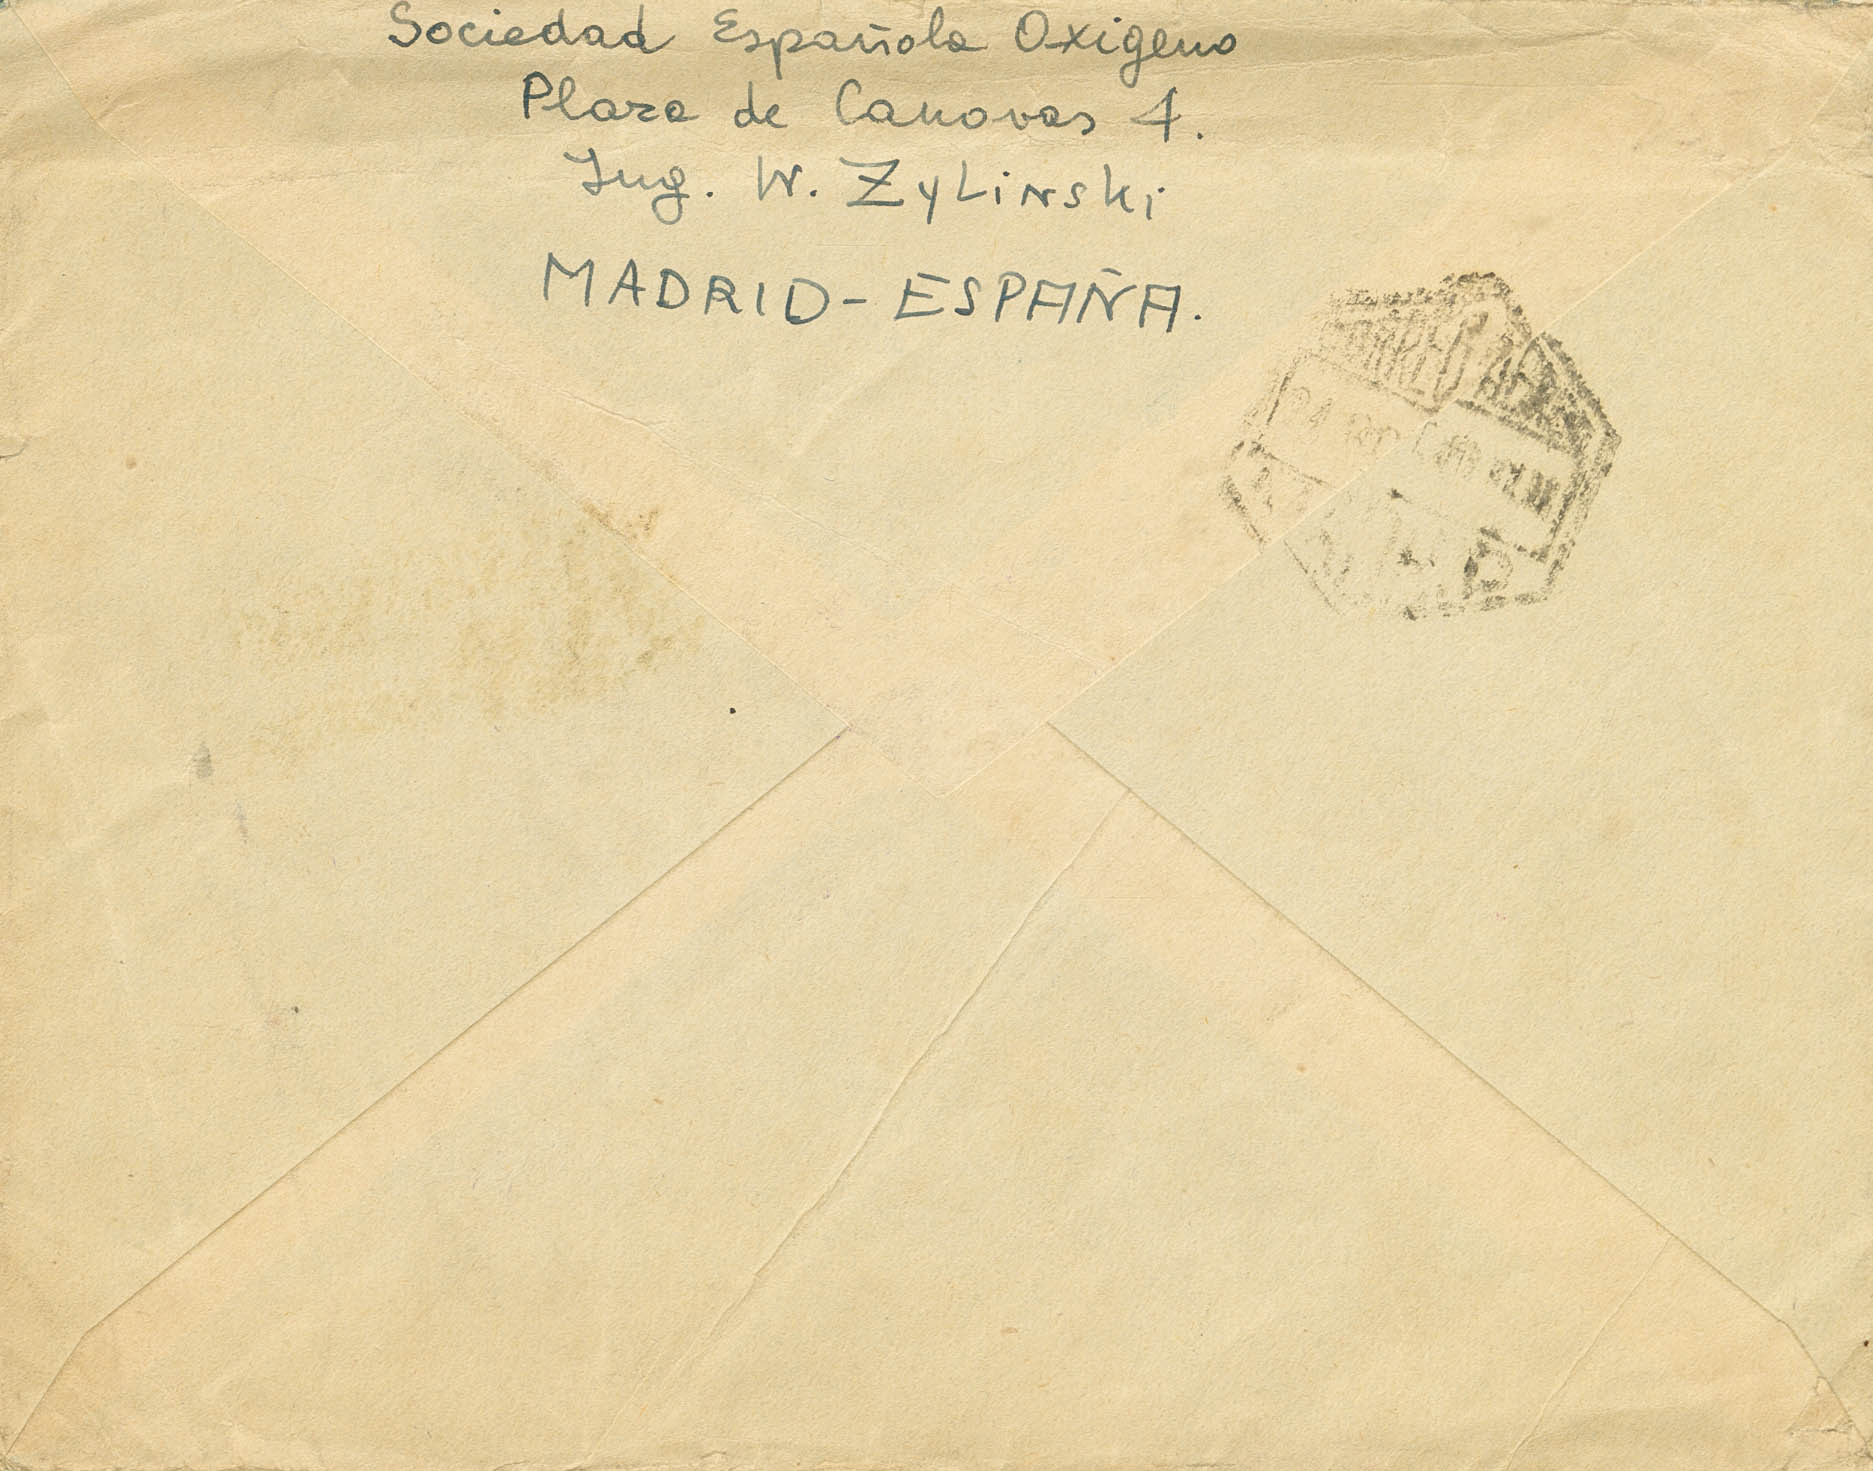 Sociedad Española Oxigeno
Plaza de Canovas 4.
Ing. W. ZyLinski
MADRID - ESPAÑA.
CORREO